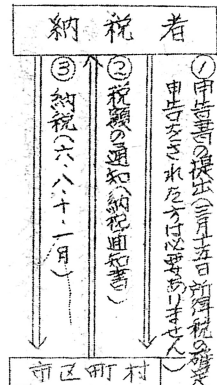 納税者
①申告書の提出(三月十五日 所得税の確定
申告をされた方は必要ありません)
②税額の通知(納税通知書)
③納税(六・八・十・一月)
市区町村